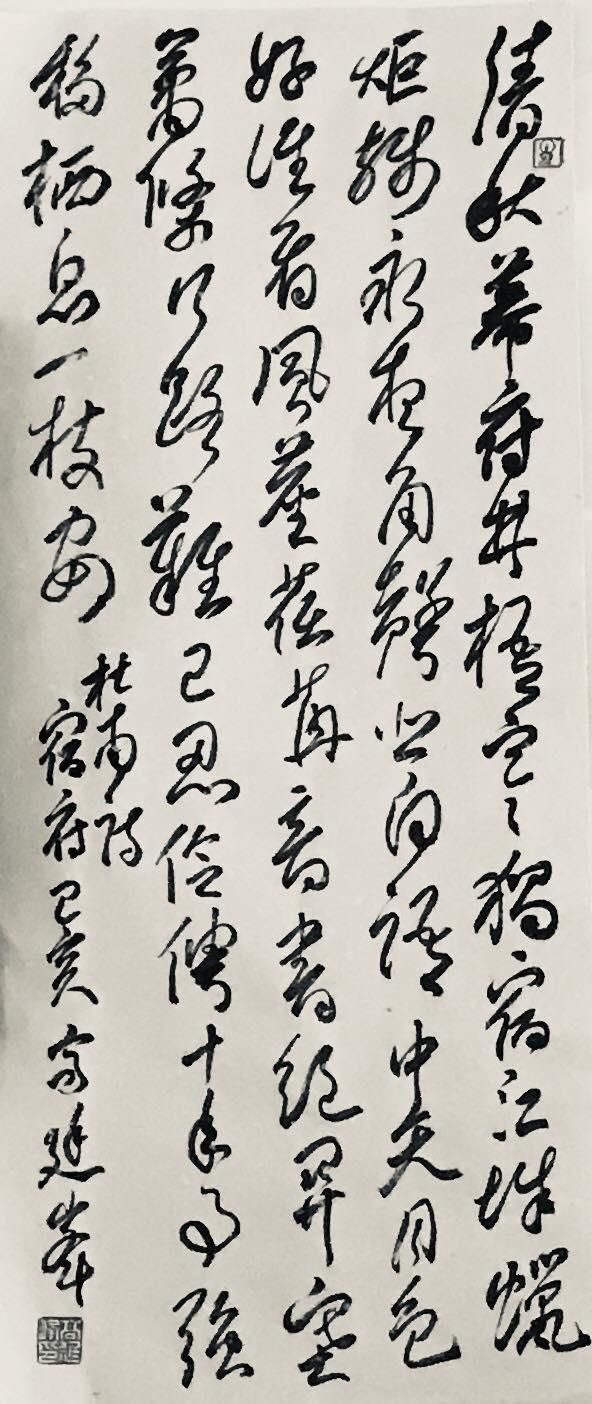 清秋幕府井梧寒獨宿江城蠟
炬殘永夜角聲悲自語中天月色
好誰看風塵荏苒音書絕關塞
蕭條行路難已忍伶俜十年事強
移栖息一枝安
杜甫詩
宿府己亥高廷峯